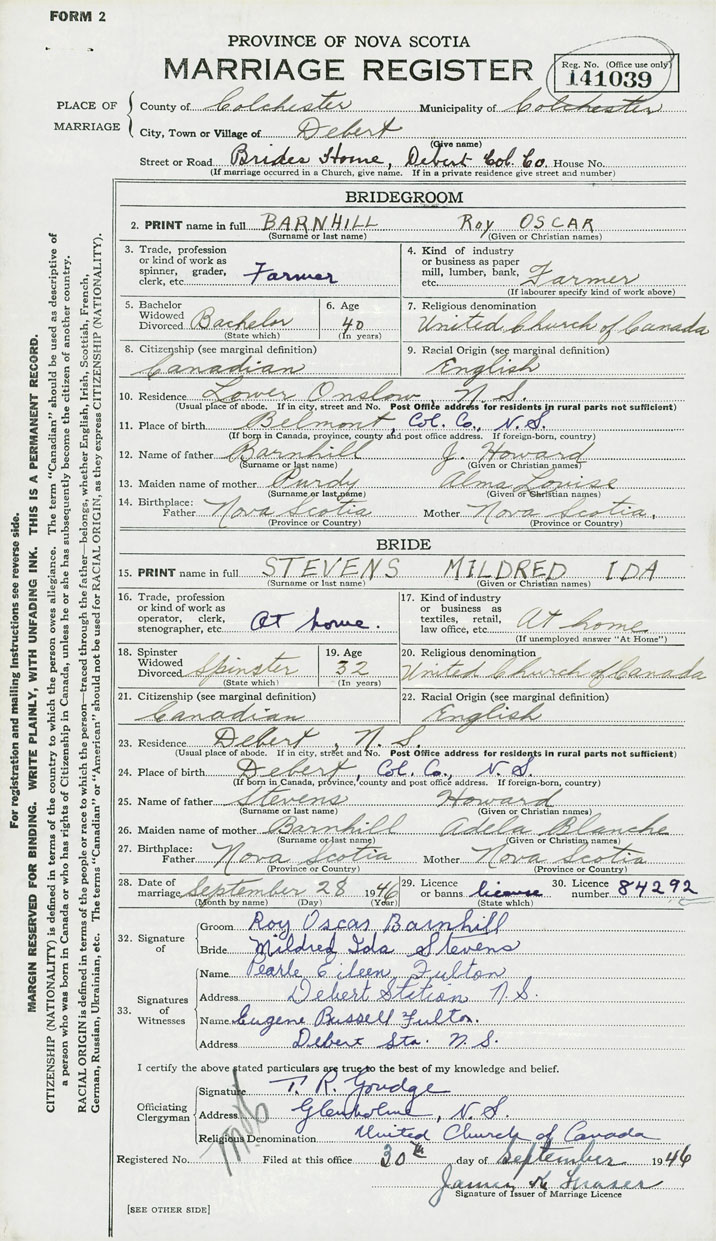 FORM 2
PROVINCE OF NOVA SCOTIA
MARRIAGE REGISTER
Reg. No. (Office use only)
141039
PLACE OF MARRIAGE
County of Colchester Municipality of Colchester
City, Town or Village of Debert
(Give name)
Street or Road Brides Home, Debert Col. Co. House No.
(If marriage occurred in a Church, give name. If in a private residence give street and number)
BRIDEGROOM
2. PRINT name in full BARNHILL ROY OSCAR
(Surname or last name) (Given or Christian names)
3. Trade, profession or kind of work as spinner, grader, clerk, etc. Farmer
4. Kind of industry or business as paper mill, lumber, bank, etc. Farmer
(If labourer specify kind of work above)
5. Bachelor Widowed Divorced Bachelor
(State which)
6. Age 40
(In years)
7. Religious denomination
United Church of Canada
8. Citizenship (see marginal definition)
Canadian
9. Racial Origin (see marginal definition)
English
10. Residence Lower Onslow, N.S.
(Usual place of abode. If in city, street and No. Post Office address for residents in rural parts not sufficient)
11. Place of birth Belmont, Col. Co., N.S.
(If born in Canada, province, county and post office address. If foreign-born, country)
12. Name of father Barnhill J. Howard
(Surname or last name) (Given or Christian names)
13. Maiden name of mother Purdy Alma Louise
(Surname or last name) (Given or Christian names)
14. Birthplace: Father Nova Scotia Mother Nova Scotia,
(Province or Country) (Province or Country)
BRIDE
15. PRINT name in full STEVENS MILDRED IDA
(Surname or last name) (Given or Christian names)
16. Trade, profession or kind of work as operator, clerk, stenographer, etc. At home.
17. Kind of industry or business as textiles, retail, law office, etc. At home
(If unemployed answer "At Home")
18. Spinster Widowed Divorced Spinster
(State which)
19. Age 32
(In years)
20. Religious denomination
United Church of Canada
21. Citizenship (see marginal definition)
Canadian
22. Racial Origin (see marginal definition)
English
23. Residence Debert, N.S.
(Usual place of abode. If in city, street and No. Post Office address for residents in rural parts not sufficient)
24. Place of birth Debert, Col. Co., N.S.
(If born in Canada, province, county and post office address. If foreign-born, country)
25. Name of father Stevens Howard
(Surname or last name) (Given or Christian names)
26. Maiden name of mother Barnhill Adela Blanche
(Surname or last name) (Given or Christian names)
27. Birthplace: Father Nova Scotia Mother Nova Scotia
(Province or Country) (Province or Country)
28. Date of marriage September 28 1946
(Month by name) (Day) (Year)
29. Licence or banns license
(State which)
30. Licence number 84292
32. Signature of
Groom Roy Oscar Barnhill
Bride Mildred Ida Stevens
33. Signatures of Witnesses
Name Pearle Eileen Fulton
Address Debert Station N.S.
Name Eugene Russell Fulton.
Address Debert Sta. N.S.
I certify the above stated particulars are true to the best of my knowledge and belief.
Officiating Clergyman
Signature T. R. Goudge
Address Glenholme, N.S.
Religious Denomination United Church of Canada
Registered No. Filed at this office 30th day of September 1946
James K Fraser
Signature of Issuer of Marriage Licence
[SEE OTHER SIDE]
For registration and mailing instructions see reverse side.
MARGIN RESERVED FOR BINDING. WRITE PLAINLY, WITH UNFADING INK. THIS IS A PERMANENT RECORD.
CITIZENSHIP (NATIONALITY) is defined in terms of the country to which the person owes allegiance. The term "Canadian" should be used as descriptive of
a person who was born in Canada or who has rights of Citizenship in Canada, unless he or she has subsequently become the citizen of another country.
RACIAL ORIGIN is defined in terms of the people or race to which the person—traced through the father—belongs, whether English, Irish, Scottish, French,
German, Russian, Ukrainian, etc. The terms "Canadian" or "American" should not be used for RACIAL ORIGIN, as they express CITIZENSHIP (NATIONALITY).